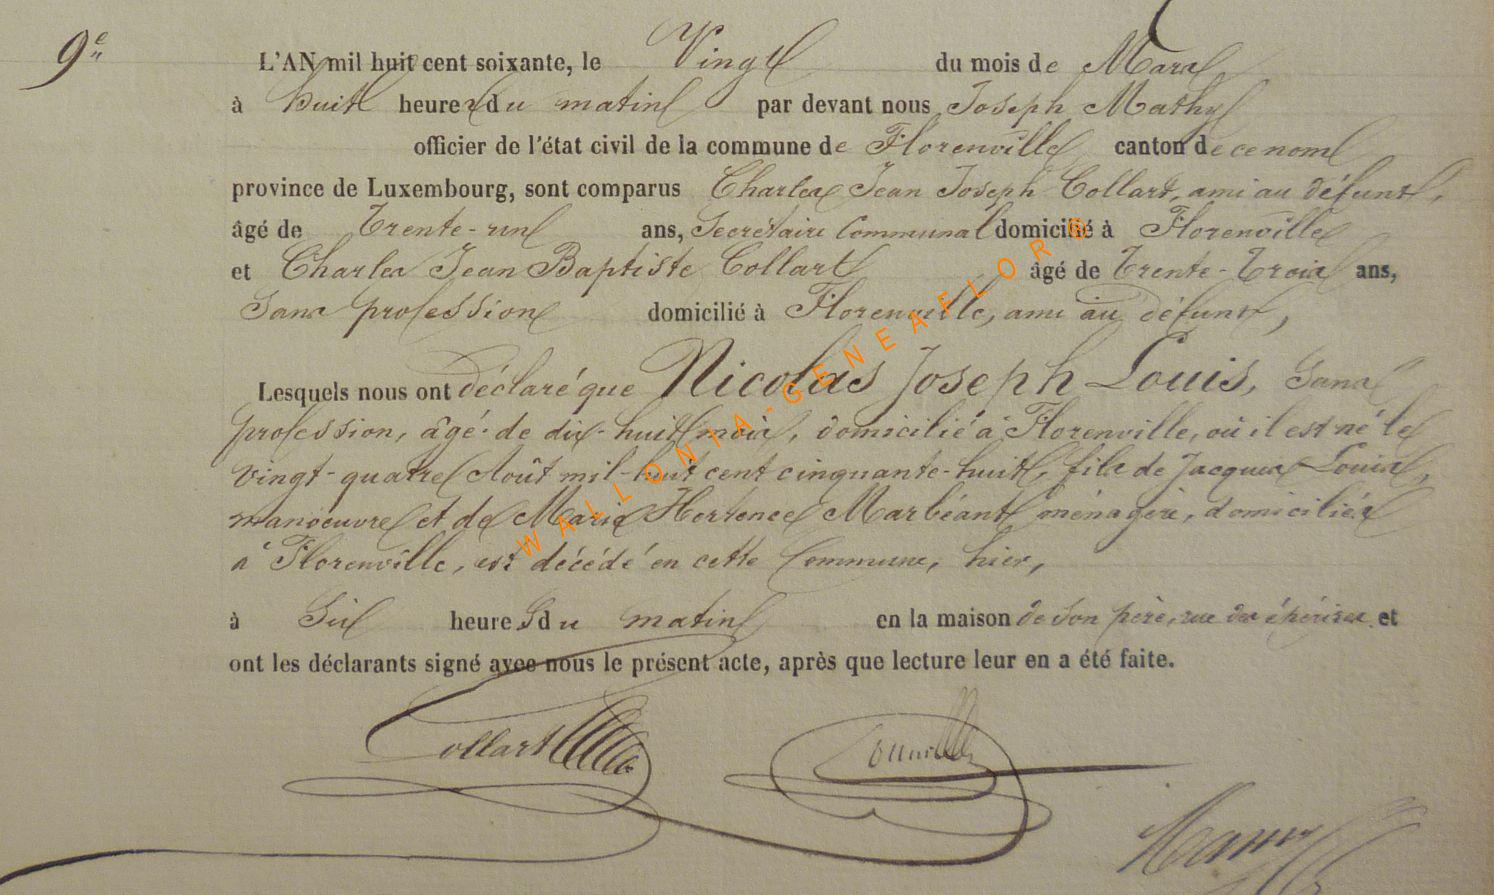 9e
L'AN mil huit cent soixante, le Vingt du mois de Mars
à huit heures du matin par devant nous Joseph Mathy
officier de l'état civil de la commune de Florenville canton de ce nom
province de Luxembourg, sont comparus Charles Jean Joseph Collart, ami au défunt,
âgé de trente-un ans, Secrétaire Communal domicilié à Florenville
et Charles Jean Baptiste Collart âgé de trente-trois ans,
Sans profession domicilié à Florenville, ami au défunt,
Lesquels nous ont déclaré que Nicolas Joseph Louis, Sans
profession, âgé de dix-huit mois, domicilié à Florenville, où il est né le
vingt-quatre Août mil-huit cent cinquante-huit, fils de Jacques Louis,
manoeuvre et de Marie Hortence Marbéant ménagère, domiciliés
à Florenville, est décédé en cette Commune, hier,
à Six heures du matin en la maison de son père, rue des épines et
ont les déclarants signé avec nous le présent acte, après que lecture leur en a été faite.
Collart
WALLONIA-GENEAFLOR®